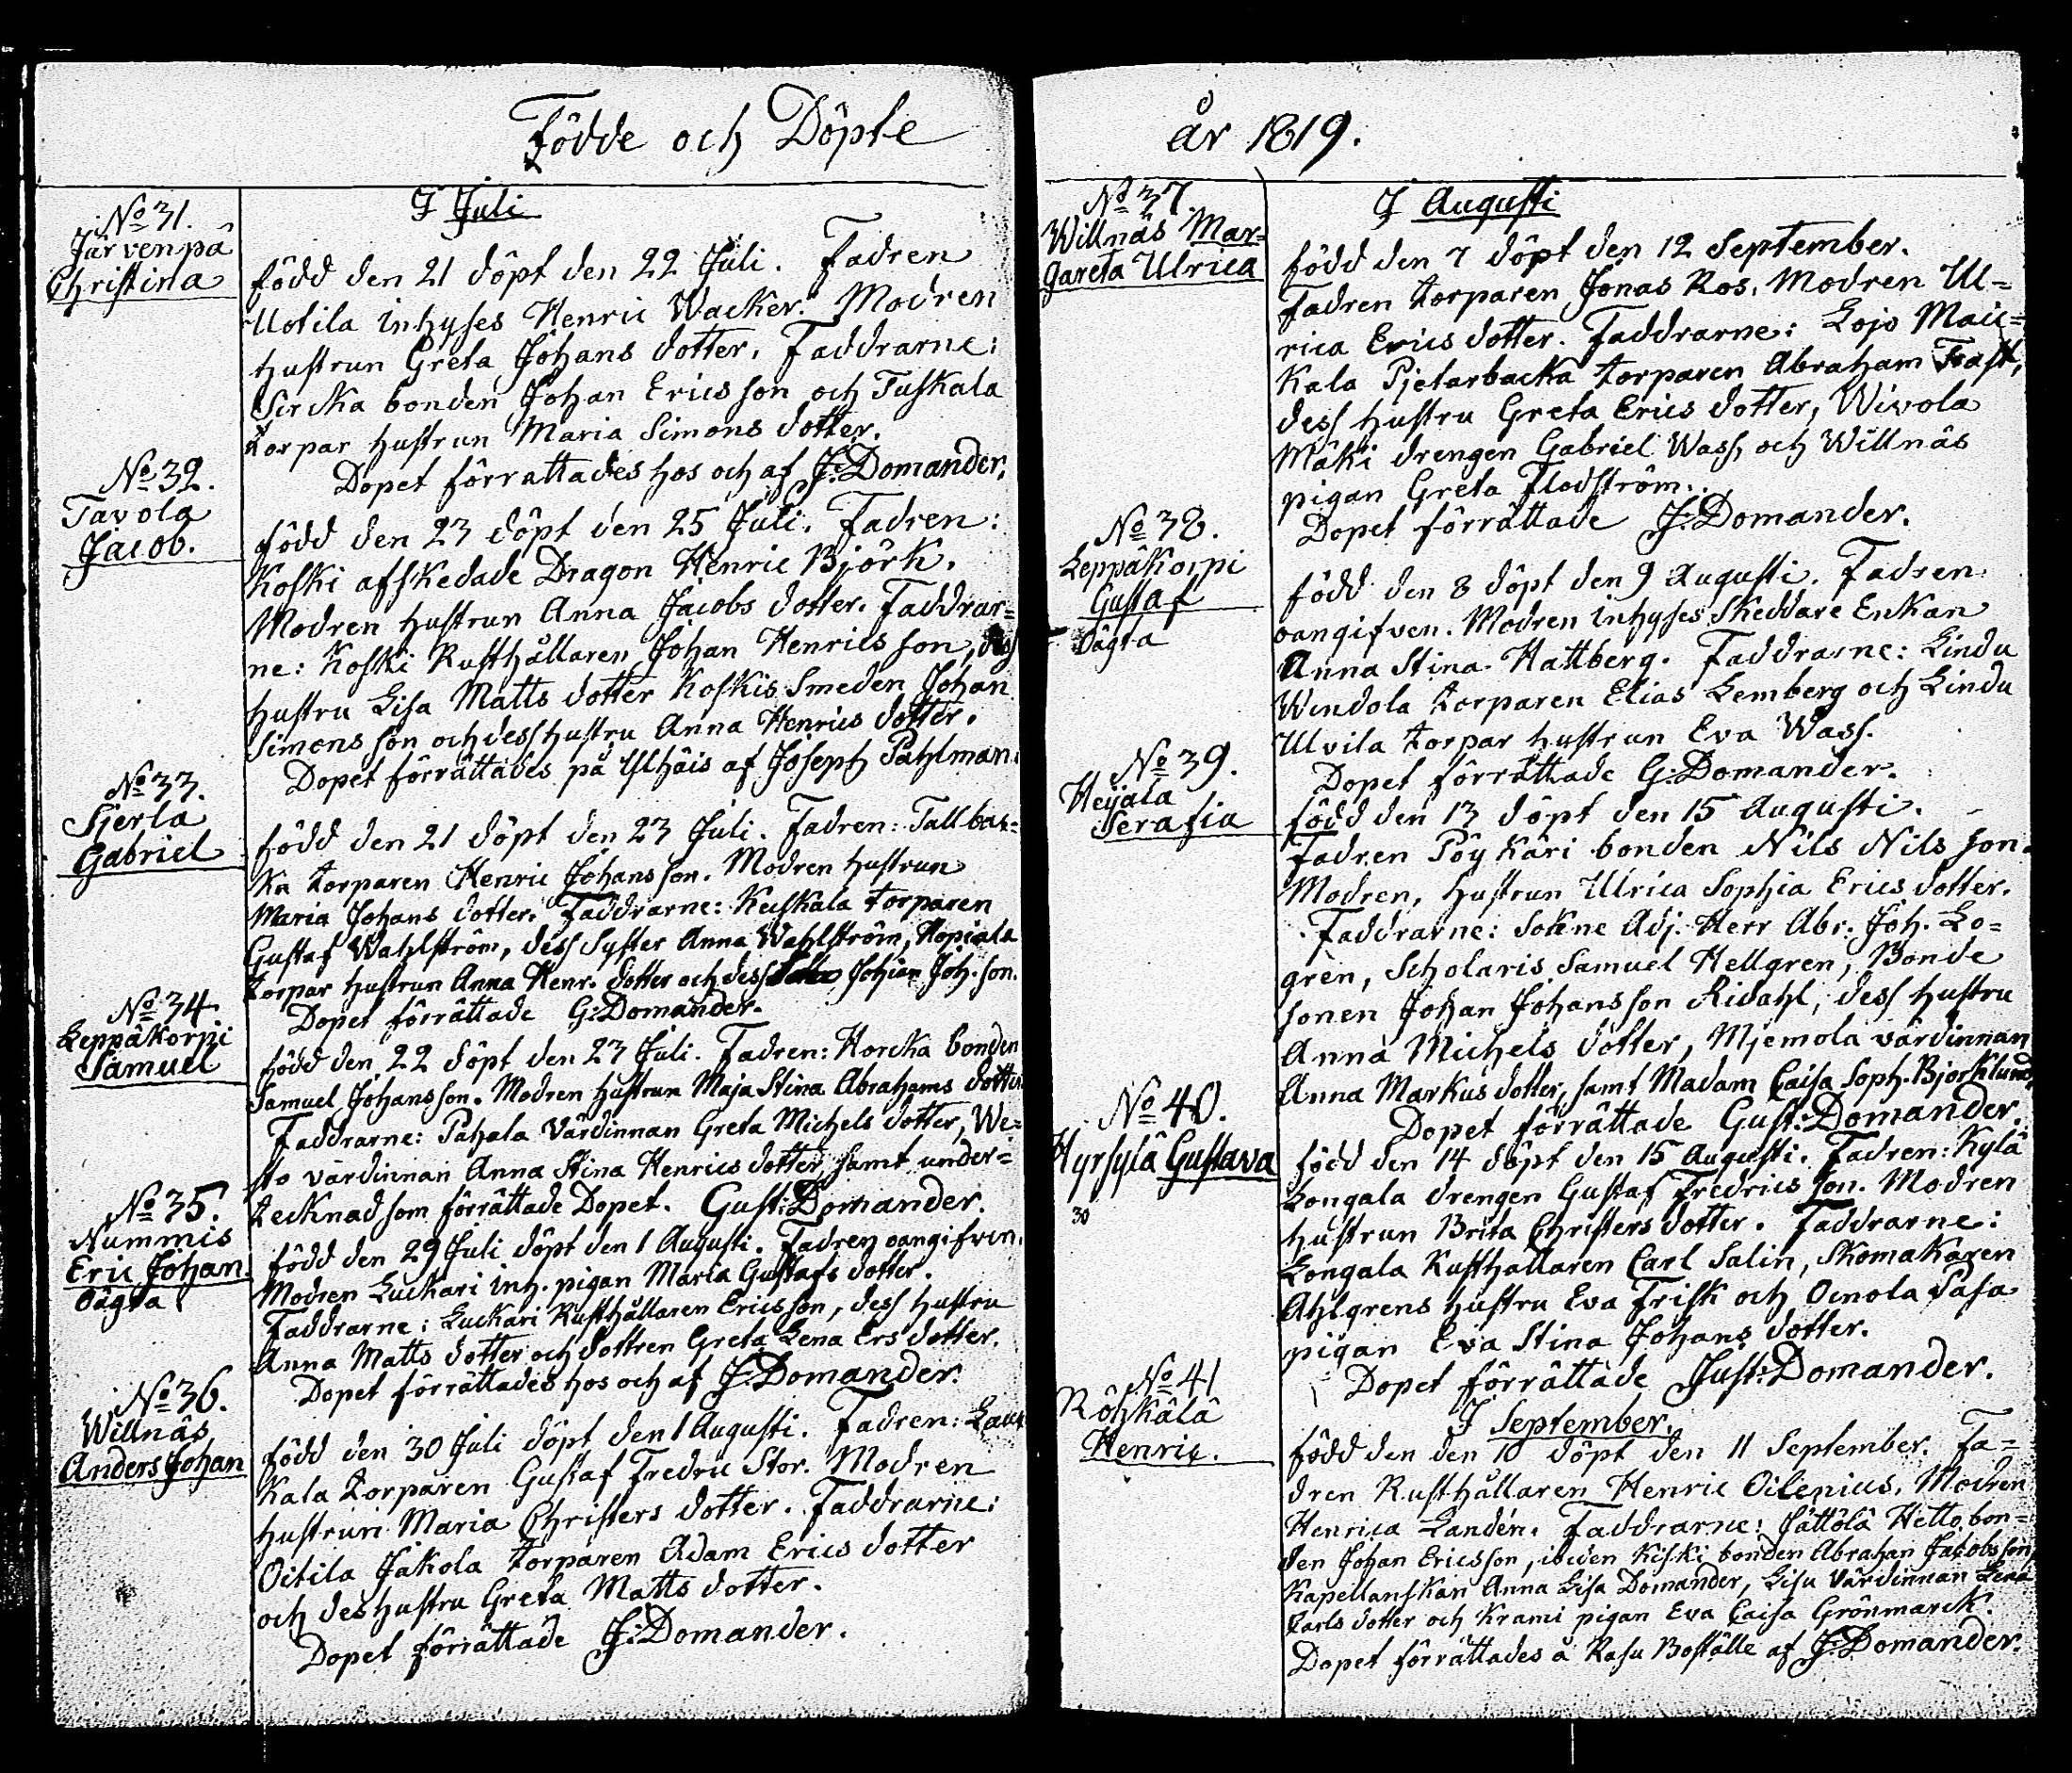 Födde och Döpte
I Juli
No 31.
Järvenpä
Christina
född den 21 döpt den 22 Juli. Fadren
Uotila inhyses Henric Wacker. Modren
hustrun Greta Johans dotter. Faddrarne:
Sircka bonden Johan Ericsson och Tuskala
torpar hustrun Maria Simons dotter.
Dopet förrattades hos och af J. Domander.
No 32.
Tavola
Jacob.
född den 23 döpt den 25 Juli. Fadren:
Koski afskedade Dragon Henric Björk.
Modren hustrun Anna Jacobs dotter. Faddrar=
ne: Koski Rusthållaren Johan Henrics son, dess
hustru Lisa Matts dotter Koskis Smeden Johan
Simons son och dess hustru Anna Henrics dotter.
Dopet förrättades på Ylhäis af Joseph Pahlman.
No 33.
Sjerla
Gabriel
född den 21 döpt den 23 Juli. Fadren: Tallbac=
ka torparen Henric Johansson. Modren hustrun
Maria Johans dotter. Faddrarne: Keiskala torparen
Gustaf Wahlström, dess Syster Anna Wahlström, Hopiala
torpar hustrun Anna Henr. dotter och dess Johan Joh. son.
Dopet förrättade G: Domander.
No 34
Leppäkorpi
Samuel
född den 22 döpt den 23 Juli. Fadren: Horcka bonden
Samuel Johansson. Modren hustrun Maja Stina Abrahams dotter
Faddrarne: Pahala Värdinnan Greta Michels dotter, We=
sto värdinnan Anna Stina Henrics dotter, samt under=
tecknad som förrättade Dopet. Gust: Domander.
No 35.
Nummis
Eric Johan
Oägta
född den 29 Juli döpt den 1 Augusti. Fadren oangifven.
Modren Luckari inh. pigan Maria Gustafs dotter.
Faddrarne: Luckari Rusthållaren Ericsson, dess hustru
Anna Matts dotter och dottren Greta Lena Ers dotter.
Dopet förrättades hos och af J. Domander.
No 36.
Willnäs
Anders Johan
född den 30 Juli döpt den 1 Augusti. Fadren: Lauk
kala torparen Gustaf Fredric Stor. Modren
hustrun Maria Christers dotter. Faddrarne:
Oitila Jakola torparen Adam Erics dotter
och des hustru Greta Matts dotter.
Dopet förrättade J: Domander.
år 1819.
I Augusti
No 37.
Willnäs Mar=
gareta Ulrica
född den 7 döpt den 12 September.
Fadren torparen Jonas Ros. Modren Ul=
rica Erics dotter. Faddrarne: Lojo Maic=
kala Pjetarbacka torparen Abraham Trast,
dess hustru Greta Erics dotter, Wivola
Mäki drengen Gabriel Wass, och Willnäs
pigan Greta Flodström.
Dopet förrättade J: Domander.
No 38.
Leppäkorpi
Gustaf
Oägta
född den 8 döpt den 9 Augusti. Fadren
oangifven. Modren inhyses Skeddare Enkan
Anna Stina Hattberg. Faddrarne: Lindu
Wendola torparen Elias Lemberg och Lindu
Ulvila torpar hustrun Eva Wass.
Dopet förrättade G: Domander.
No 39.
Heijala
Serafia
född den 13 döpt den 15 Augusti.
Fadren Pöykäri bonden Nils Nils son.
Modren, hustrun Ulrica Sophia Erics dotter.
Faddrarne: Sokne Adj. Herr Abr. Joh. Lo=
gren, Scholaris Samuel Hellgren, Bonde
sonen Johan Johansson Ridahl, dess hustru
Anna Michels dotter, Mjemola värdinnan
Anna Markus dotter, samt Madam Caisa Soph. Bjorklund.
Dopet förrättade Gust: Domander.
No 40.
Hyrsylä Gustava
30
född den 14 döpt den 15 Augusti. Fadren: Kylä
Longala drengen Gustaf Fredrics son. Modren
hustrun Brita Christers dotter. Faddrarne:
Longala Rusthallaren Carl Salin, Skomakaren
Ahlgrens hustru Eva Frisk och Oinola Sasa
pigan Eva Stina Johans dotter.
Dopet förrättade Just: Domander.
I September.
No 41
Röhkälä
Henric.
född den den 10 döpt den 11 September. Fa=
dren Rusthållaren Henric Oilenius. Modren
Henrica Landén. Faddrarne: Jättölä Hetto bon=
den Johan Ericsson, ibiden Kiski bonden Abrahan Jacobsson
Kapellanskan Anna Lisa Domander, Lisu Värdinnan Lena
Carls dotter och Krami pigan Eva Caisa Grönmarck.
Dopet förrättades å Rasu Boställe af J. Domander.